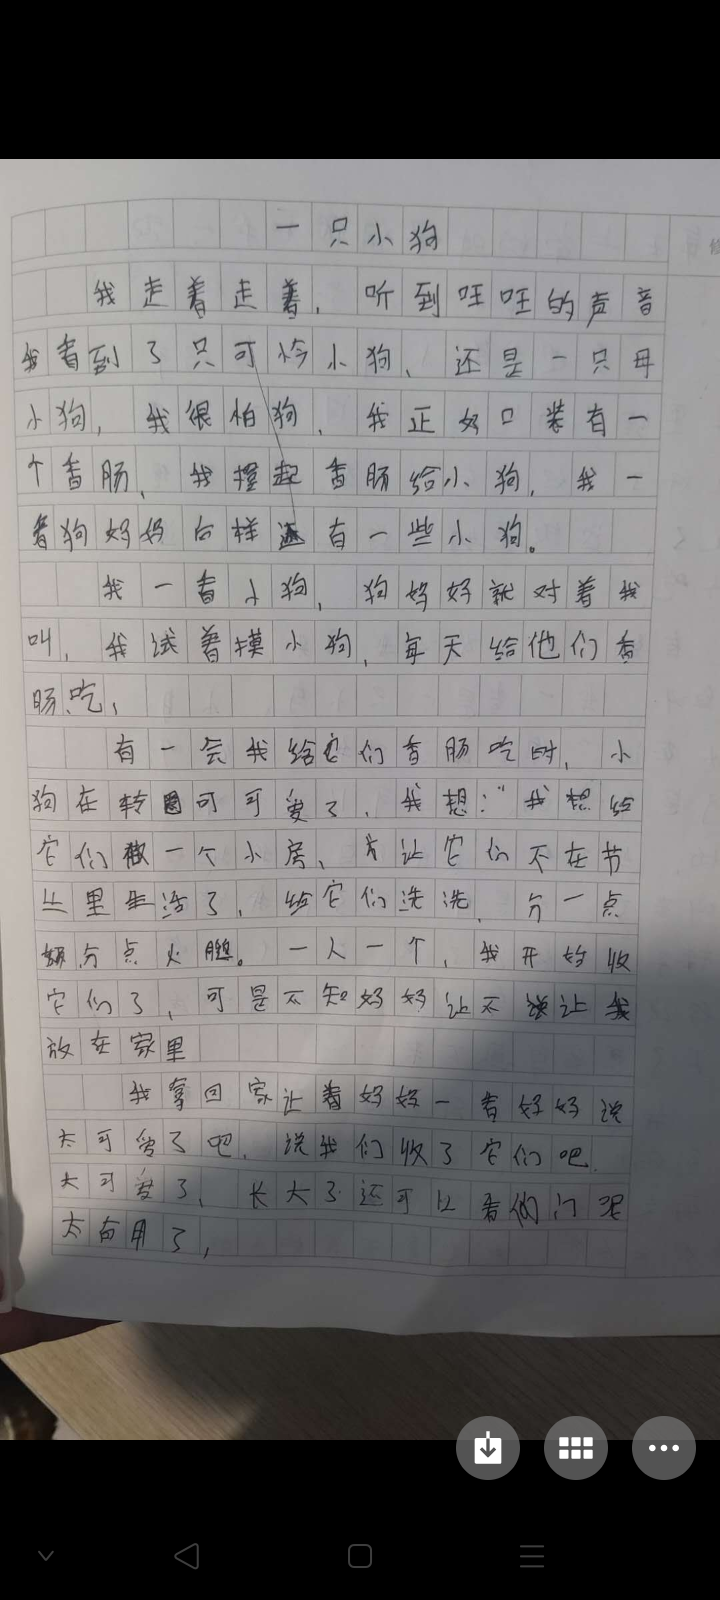 一只小狗
我走着走着，听到吐吐的声音
我看到了只可怜小狗、还是一只母
小狗，我很怕狗，我正好口装有一
个香肠，我起香肠给小狗，我一
看狗妈妈有一些小狗。
我一看小狗，狗妈妈就对着我
叫，我试着摸小狗，每天给他们香
肠吃，
有一会我给它们香肠吃时，小
狗在转圈可可爱了，我想：“我想给
它们做一个小房、让它们不在节
里生活了，给它们洗洗，分一点
分点火腿。一人一个，我开始收
它们了，可是不知妈妈让不让我
放在家里
我拿回家让着妈妈一看妈妈说
太可爱了吧，说我们收了它们吧
太可爱了，长大了还可以看们门呢
太有用了，